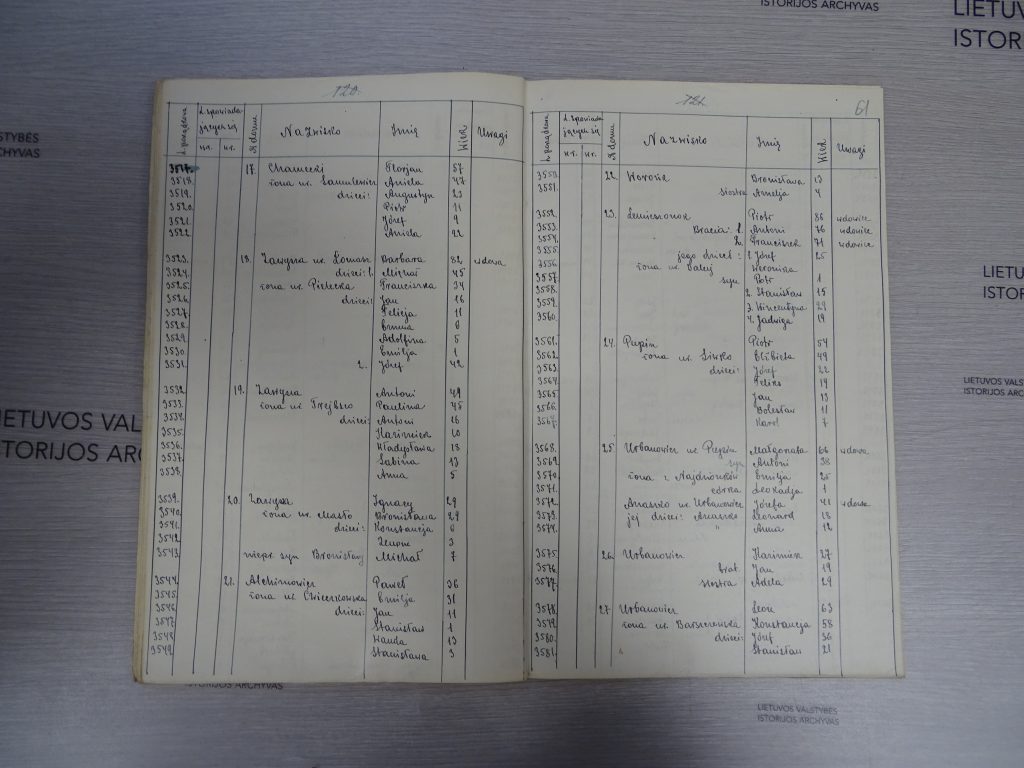 LIETUVOS VALSTYBĖS
ISTORIJOS ARCHYVAS
120.
L. porządkowa
L. spowiadających się
№ domu
Nazwisko
Imię
Wiek
Uwagi
3517. 17. Chramecki Florjan 57
3518. żona ur. Samulewicz Aniela 47
3519. dzieci: Augustyn 23
3520. Piotr 11
3521. Józef 9
3522. Aniela 22
3523. 18. Zawyza ur. Tomasz Barbara 82 wdowa
3524. dzieci: 1. Michał 45
3525. żona ur. Franciszka 34
3526. dzieci: Jan 16
3527. Felicja 11
3528. Emma 8
3529. Adolfina 5
3530. Emilja 1
3531. 2. Józef 42
3532. 19. Zawyza Antoni 49
3533. żona ur. Paulina 45
3534. dzieci: Antoni 18
3535. Kazimierz 10
3536. Władysława 18
3537. Sabina 13
3538. Anna 5
3539. 20. Zawyza Ignacy 29
3540. żona ur. Masło Bronisława 29
3541. dzieci: Konstancja 6
3542. Zenon 3
3543. niepr. syn Bronisławy Michał 7
3544. 21. Alchimowicz Paweł 36
3545. żona ur. Ćwierkowska Emilja 31
3546. dzieci: Jan 11
3547. Stanisław 1
3548. Wanda 13
3549. Stanisława 3
121.
61
L. porządkowa
L. spowiadających się
№ domu
Nazwisko
Imię
Wiek
Uwagi
3550. 22. Worona Bronisława 13
3551. siostra Amelja 4
3552. 23. Lemieszonok Piotr 86 wdowiec
3553. Bracia: 1. Antoni 76 wdowiec
3554. 2. Franciszek 71 wdowiec
3555. jego dzieci: 1. Józef 25
3556. żona ur. Weronika
3557. syn Piotr 1
3558. 2. Stanisław 15
3559. 3. Wincentyna 29
3560. 4. Jadwiga 19
3561. 24. Pupin Piotr 54
3562. żona ur. Elżbieta 49
3563. dzieci: Józef 22
3564. Feliks 19
3565. Jan 13
3566. Bolesław 11
3567. Karol 7
3568. 25. Urbanowicz ur. Pupin Małgorzata 66 wdowa
3569. syn Antoni 38
3570. żona z Najdzionków Emilja 25
3571. córka Leokadja 1
3572. Anaszko ur. Urbanowicz Józefa 41 wdowa
3573. jej dzieci: Anaszko Leonard 18
3574. " Anna 12
3575. 26. Urbanowicz Kazimierz 27
3576. brat Jan 19
3577. siostra Adela 29
3578. 27. Urbanowicz Leon 63
3579. żona ur. Barszczewska Konstancja 58
3580. dzieci: Józef 36
3581. Stanisław 21
LIETUVOS VALSTYBĖS
ISTORIJOS ARCHYVAS